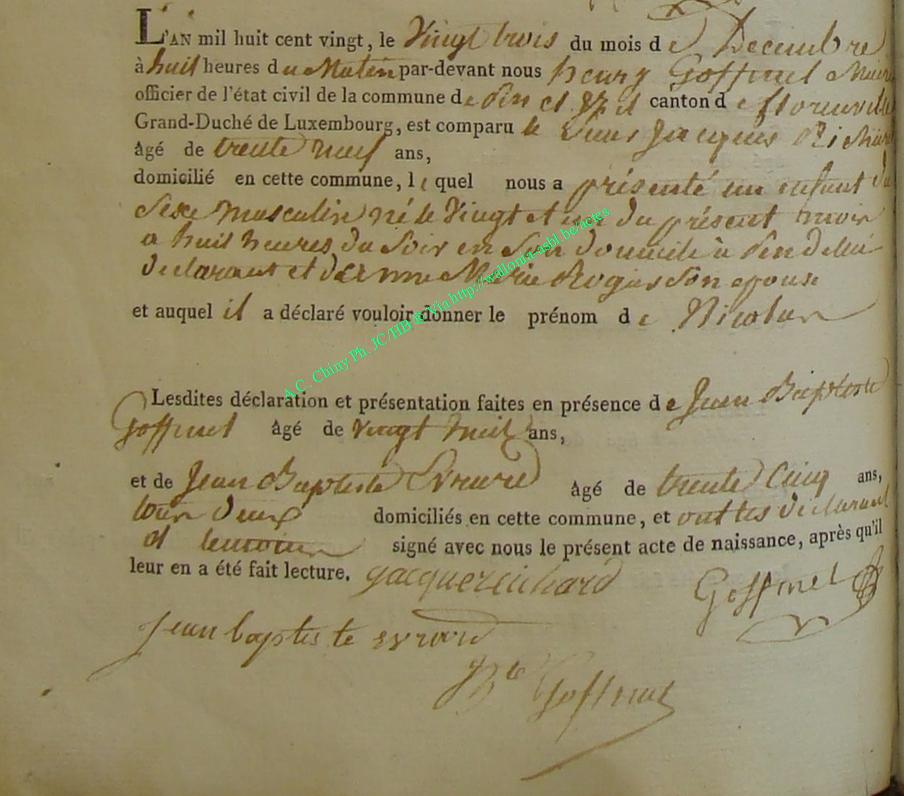 L'AN mil huit cent vingt, le Vingt trois du mois de Decembre
à huit heures du Matin par-devant nous henry Goffinet Maire
officier de l'état civil de la commune de Pin et Izel canton de florenville
Grand-Duché de Luxembourg, est comparu le Sieur Jacques Richard
âgé de trente neuf ans,
domicilié en cette commune, lequel nous a présenté un enfant du
Sexe masculin né le Vingt et un du présent mois
a huit heures du Soir en Son domicile à Pin de lui
declarant et d'anne Marie Rogier Son epouse
et auquel il a déclaré vouloir donner le prénom de Nicolas
A.C. Chiny Ph. JC/HB & Via http://wallonia-asbl.be/actes
Lesdites déclaration et présentation faites en présence de Jean Baptiste
Goffinet âgé de Vingt huit ans,
et de Jean Baptiste Evrard âgé de trente Cinq ans,
tous deux domiciliés en cette commune, et ont les declarant
et temoins signé avec nous le présent acte de naissance, après qu'il
leur en a été fait lecture. jacque richard
Goffinet
jean baptiste evrard
JBte Goffinet